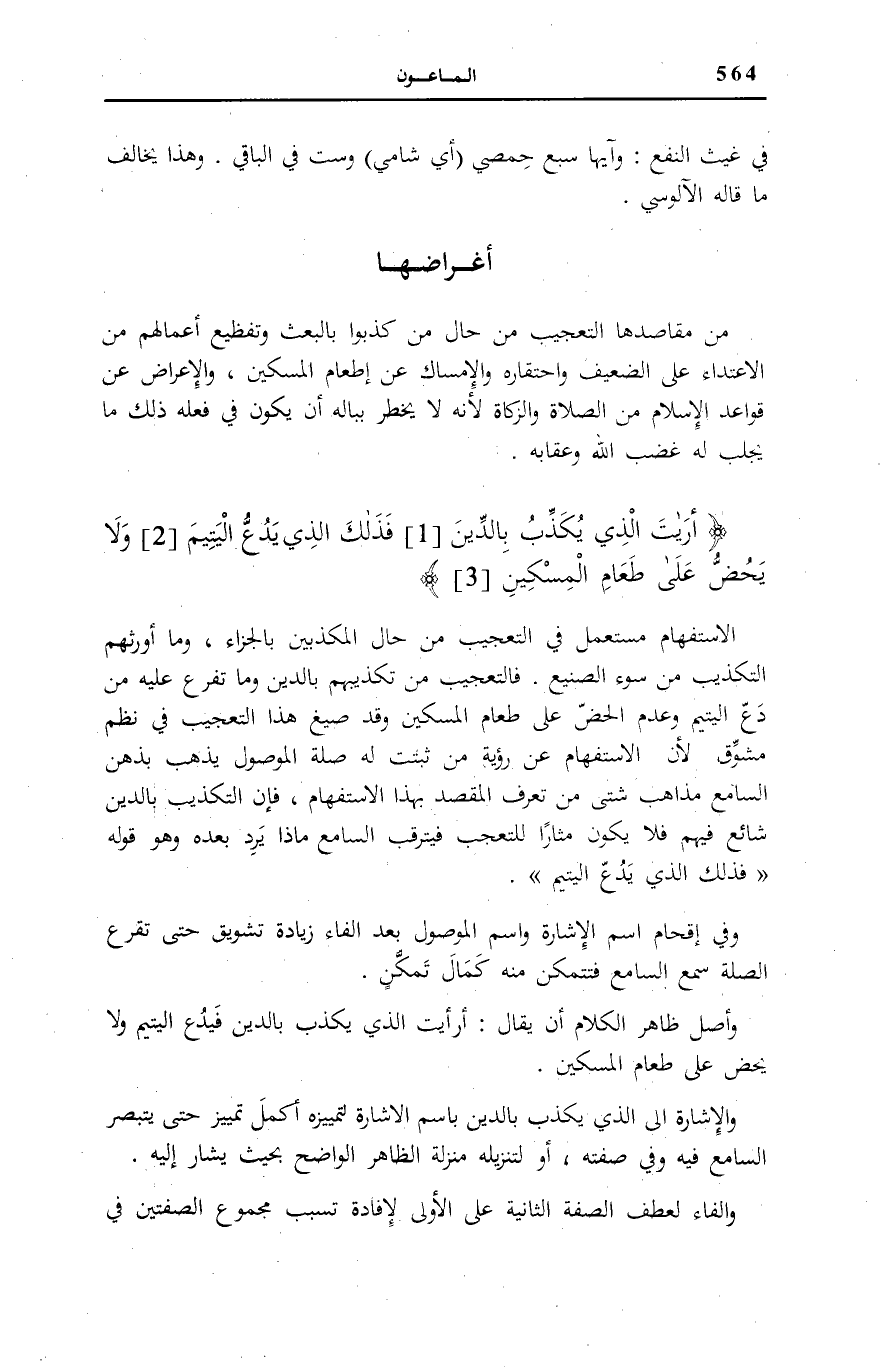 564
المـاعـون
في غيث النفع : وآيها سبع حِمصي (أي شامي) وست في الباقي . وهذا يخالف
ما قاله الآلوسي .
أغـراضـهـا
من مقاصدها التعجيب من حال من كذبوا بالبعث وتفظيع أعمالهم من
الاعتداء على الضعيف واحتقاره والإمساك عن إطعام المسكين ، والإعراض عن
قواعد الإسلام من الصلاة والزكاة لأنه لا يخطر بباله أن يكون في فعله ذلك ما
يجلب له غضب الله وعقابه .
﴿ أَرَيْتَ الَّذِي يُكَذِّبُ بِالدِّينَ [1] فَذَلِكَ الذِي يَدُعُّ الْيَتِيمَ [2] وَلَا
يَحُضُّ عَلَىٰ طَعَامِ الْمِسْكِينِ [3] ﴾
الاستفهام مستعمل في التعجيب من حال المكذبين بالجزاء ، وما أورثهم
التكذيب من سوء الصنيع . فالتعجيب من تكذيبهم بالدين وما تفرع عليه من
دَعّ اليتيم وعدم الحضّ على طعام المسكين وقد صيغ هذا التعجيب في نظم
مشوِّق لأن الاستفهام عن رؤية من ثبتت له صلة الموصول يذهب بذهن
السامع مذاهب شتى من تعرف المقصد بهذا الاستفهام ، فإن التكذيب بالدين
شائع فيهم فلا يكون مثارًا للتعجب فيترقب السامع ماذا يَرِد بعده وهو قوله
« فذلك الذي يَدُعّ اليتيم » .
وفي إقحام اسم الإشارة واسم الموصول بعد الفاء زيادة تشويق حتى تقرع
الصلة سمع السامع فتتمكن منه كَمَالَ تَمكُّنٍ .
وأصل ظاهر الكلام أن يقال : أرأيت الذي يكذب بالدين فَيدُع اليتيم ولا
يحض على طعام المسكين .
والإشارة الى الذي يكذب بالدين باسم الاشارة لتمييزه أكملَ تمييز حتى يتبصر
السامع فيه وفي صفته ، أو لتنزيله منزلة الظاهر الواضح بحيث يشار إليه .
والفاء لعطف الصفة الثانية على الأولى لإفادة تسبب مجموع الصفتين في